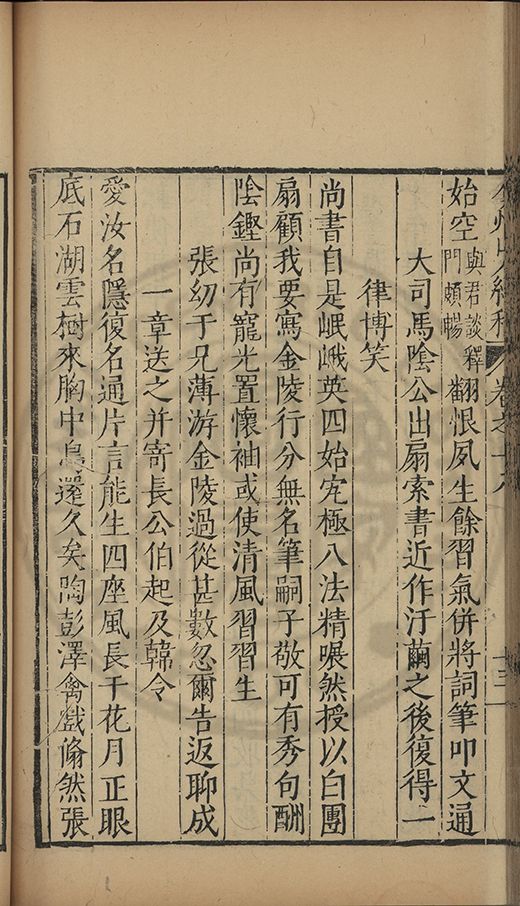 弇州山人續稿 卷之十八
始空與君談釋門頗暢翻恨夙生餘習氣併將詞筆叩文通
大司馬陰公出扇索書近作汗繭之後復得一
律博笑
尚書自是岷峨英四始究極八法精囅然授以白團
扇顧我要寫金陵行分無名筆嗣子敬可有秀句酬
陰鏗尚有寵光置懷袖或使清風習習生
張幼于兄薄游金陵過從甚數忽爾告返聊成
一章送之并寄長公伯起及韓令
愛汝名隱復名通片言能生四座風長干花月正眼
底石湖雲樹來胸中鳥還久矣陶彭澤禽戲翛然張